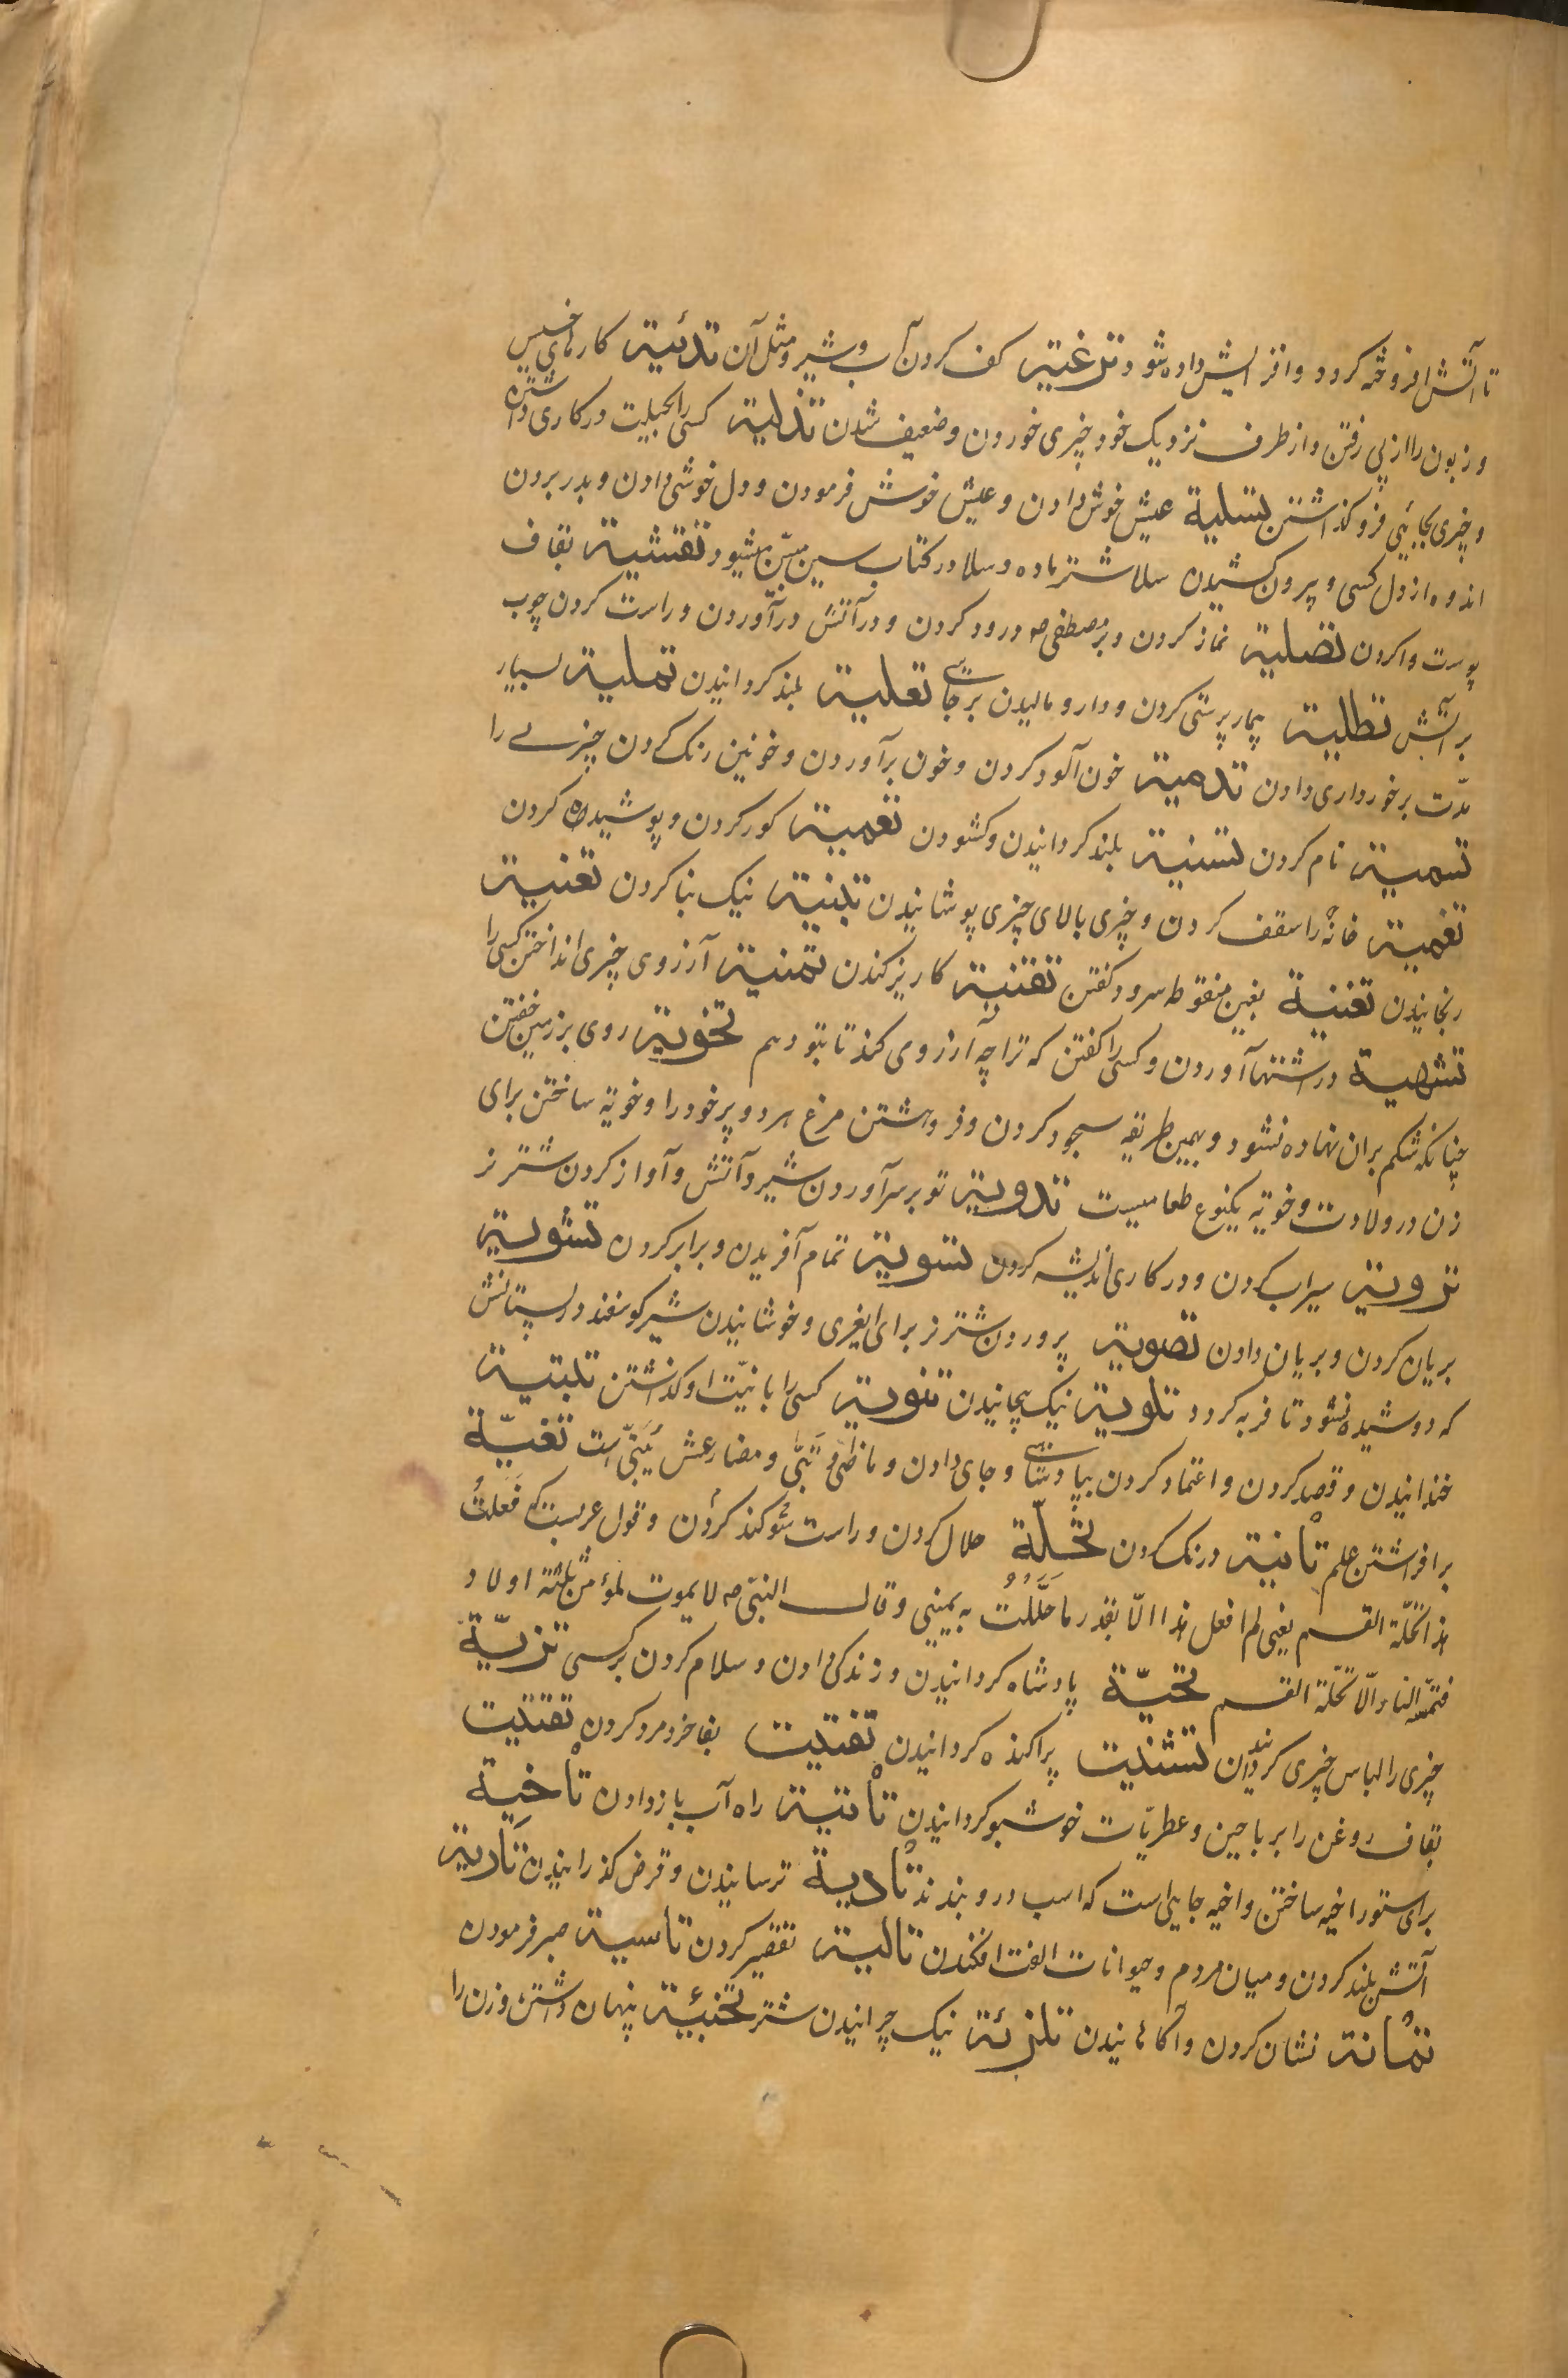 تا آتش افروخته کردد وافزایش داده شود ترغیة کف کردن آب و شیر و مثل آن تدئیة کارهای خسیس
و زبون را از پی رفتن و از طرف نزدیک خود چیزی خوردن و ضعیف شدن تذلیة کسی را بحیلت در کاری داشتن
و چیزی بجائی فرو کذاشتن تسلیة عیش خوش دادن و عیش خوش فرمودن و دل خوشی دادن و بدر بردن
اندوه از دل کسی و پیرون کشیدن سلا شتر ماده و سلا در کتاب سین مبیّن میشود تقشیة بقاف
پوست واکردن تصلیة نماز کردن و بر مصطفی صه درود کردن و در آتش درآوردن و راست کردن چوب
بر آتش تطلیة پیمار پرستی کردن و دارو مالیدن بر جائی تعلیة بلند کردانیدن تملیة بسیار
مدّت برخورداری دادن تدمیة خون آلود کردن و خون برآوردن و خونین رنک کردن چیزے را
تسمیة نام کردن تسنیة بلند کردانیدن و کشودن تعمیة کور کردن و پوشیده کردن
تغمیة خانه را سقف کردن و چیزی بالای چیزی پوشانیدن تبنیة نیک بنا کردن تعنیة
رنجانیدن تغنیة بغین منقوطه سرود کفتن تقنیة کاریز کندن تمنیة آرزوی چیزی انداختن کسی را
تشهیة در اشتها آوردن و کسی را کفتن که ترا چه آرزو می کند تا بتو دهم تخویة روی بر زمین خفتن
چنانکه شکم بران نهاده نشود و بهمین طریقه سجود کردن و فروهشتن مرغ هر دو پر خود را و خویه ساختن برای
زن در ولادت و خویّه یکنوع طعامیست تدویة تو بر سر آوردن شیر و آتش و آواز کردن شتر نر
ترویة سیراب کردن و در کاری اندیشه کردن تسویة تمام آفریدن و برابر کردن تشویة
بریان کردن و بریان دادن تصویة پروردن شتر نر برای ایغری و خوشانیدن شیر کوسفند در پستانش
که دوشیده نشود تا فربه کردد تلویة نیک پیچانیدن تنویة کسی را با نیّت او کذاشتن تبییة
خندانیدن و قصد کردن و اعتماد کردن بپادشاهی و جای دادن و ماضی او بَیّی و مضارعش یُبَیّی است تغییّة
برافراشتن علم تأنیة درنک کردن تحلّة حلال کردن و راست سوکند کردن و قول عربست که فَعَلتُ
هذا تحلّة القسم یعنی لم افعل هذا الّا بقدر ما حَلَّلْتُ به یمینی و قال النبّی صه لا یموت لمؤمن ثلثة اولاد
فتمسّه النار الّا تحلّة القسم تحیّة پادشاه کردانیدن و زندکی دادن و سلام کردن بر کسی تزییّة
چیزی را لباس چیزی کردانیدن تشتیت پراکنده کردانیدن تفتیت بفا خرد مرد کردن تقتیت
بقاف روغن را بر باحین و عطریّات خوشبو کردانیدن تأتیة راه آب باز دادن تأخیة
برای ستور اخیه ساختن و اخیه جایی است که اسب در و بندند تأدیة ترسانیدن و قرض کذرانیدن تأریة
آتش بلند کردن و میان مردم و حیوانات الفت افکندن تألیة تقصیر کردن تأسیة صبر فرمودن
تمأنة نشان کردن و آکاهانیدن تلزئة نیک چرانیدن شتر تخبئة پنهان داشتن و زن را